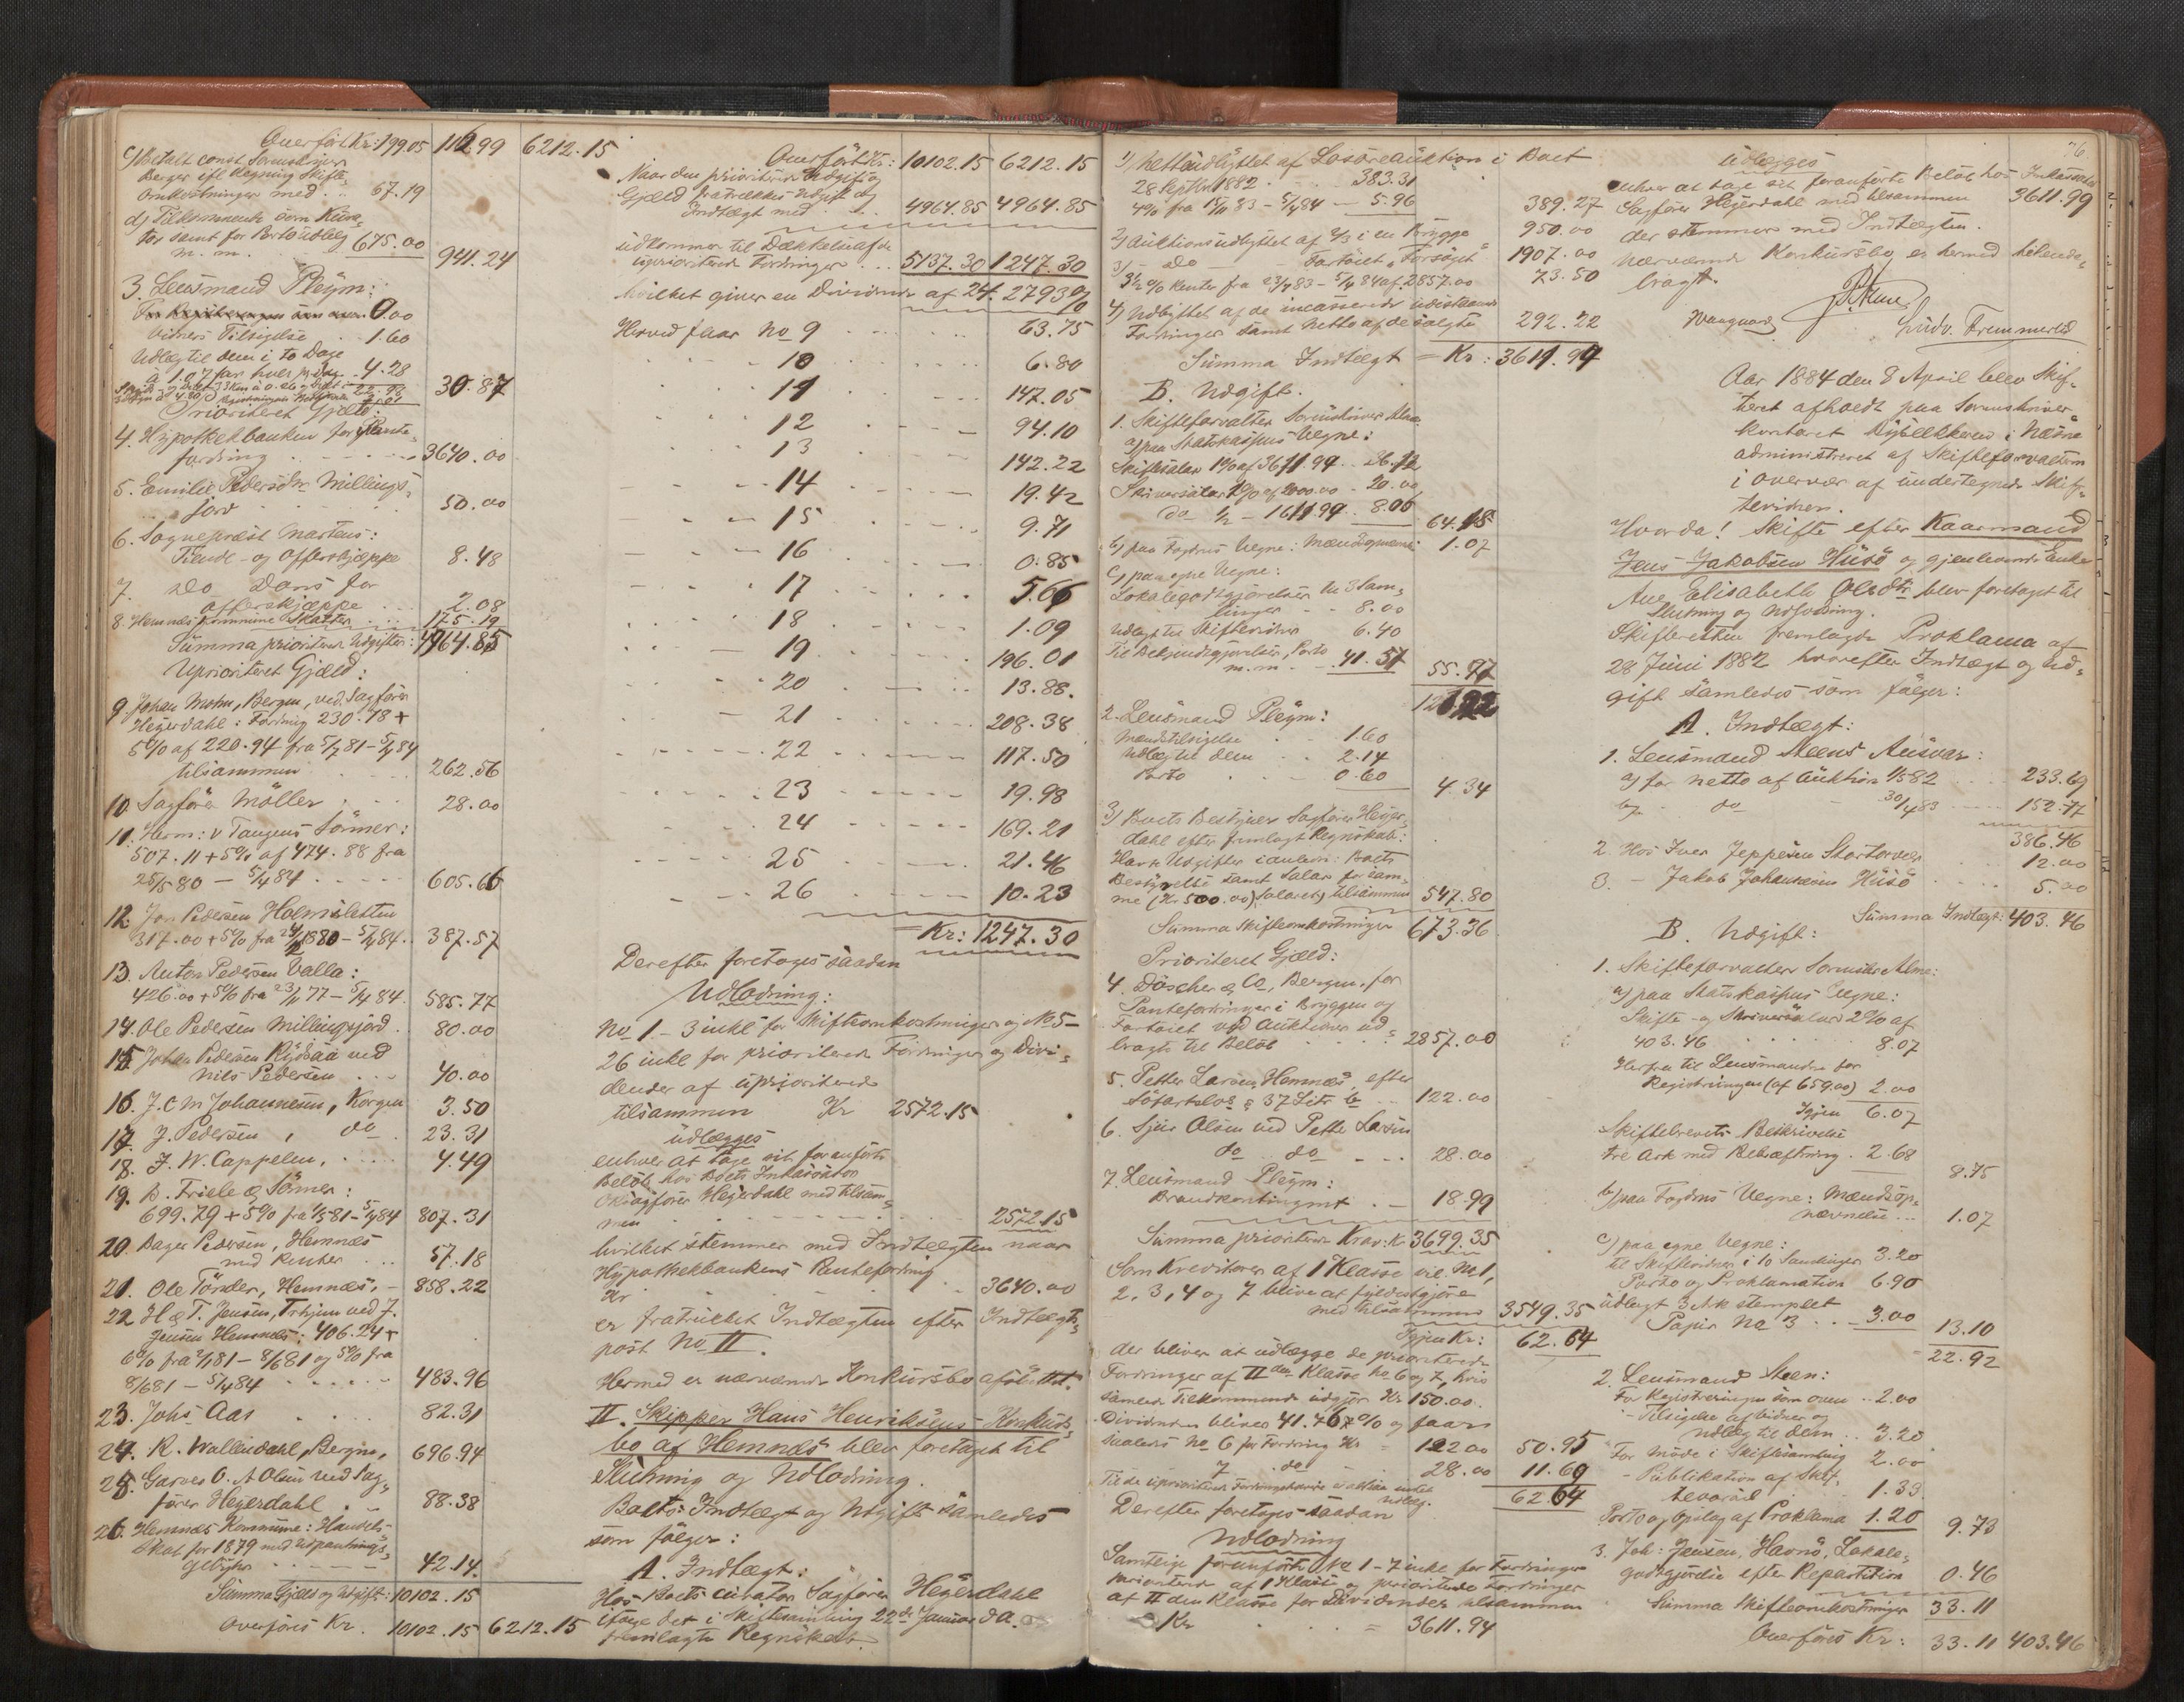 Overført Kr: 199.05 112.99 6212.15
c) Betalt const. Sorenskriver
Berger ifl. Regning Skifte-
omkostninger med .. 67.19
d) Tilkommende som Kura-
tor samt for Portoudlæg 675.00
m. m. 941.24
3. Lensmand Pleym:
0.00
Vidners Tilsigelse . 1.60
Udlæg til dem i to Dage
à 1.07 for hver pr. Dag . 4.28
30.87
Prioriteret Gjæld:
4. Hypothekbanken for Pante-
fordring . . . . 3640.00
5. Emilie Pedersdtr Millings-
jord 50.00
6. Sogneprest Martens:
Tiende- og Offerskjæppe 8.48
7. Do Dons for
Offerskjæppe ... 2.08
8. Hemnæs Kommune Skatter ... 175.19
Summa prioriterede Udgifter: 4964.85
Uprioriteret Gjæld:
9. Johan Mohn, Bergen, ved Sagfører
Hegerdahl: Fordring 230.78 +
5% af 220.94 fra 5/7 81 - 5/4 84
tilsammen 262.56
10. Sagfører Møller . . . 28.00
11. Herm: v Tangens Sønner:
507.11 + 5% af 474.88 fra
25/5 80 - 5/4 84 . . . . 605.66
12. Jon Pedersen Holmsletten
317.00 + 5% fra 1880 - 5/4 84 .. 387.57
13. Anton Pedersen Valla:
426.00 + 5% fra 77 - 5/4 84. 585.77
14. Ole Pedersen Millingsjord . 80.00
15. Johan Pedersen Rydsaa ved
Nils Pedersen . . . 40.00
16. J. C M Johannesen, Korgen 3.50
17. J. Pedersen , do . 23.31
18. J. W. Cappelen, . . . . . 4.49
19. B. Friele & Sønner:
699.79 + 5% fra 81 - 5/4 84 807.31
20. Dager Pedersen, Hemnæs
med Renter ... 57.18
21. Ole Tønder, Hemnæs, - 858.22
22 H & T. Jensen, Trhjem ved J.
Jensen Hemnæs: 406.24 +
6% fra 81 - 8/6 81 og 5% fra
8/6 81 - 5/4 84 . . . . . . 483.96
23. Johs Aas . . . . 82.31
24. R. Wallendahl, Bergen, 696.94
25. Garver O. A Olsen ved Sag-
fører Hegerdahl . . 88.38
26. Hemnæs Kommune: Handels-
skat for 1879 med Udpantnings-
gebyhr . . . 42.14.
Summa Gjæld og Udgift: 10102.15
Overføres Kr. 10102.15 6212.15
Overført Kr: 10102.15 6212.15
Naar den prioriterede Udgift og
Gjæld fratrækkes Udgift og
Indtægt med . . . 4964.85 4964.85
udkommer til Dækkelse af de
uprioriterede Fordringer ... 5137.30 1247.30
hvilket giver en Dividende af 24.2793 %
Herved faar No 9 . . . 63.75
10 . . . 6.80
11 . . . 147.05
12 . . . 94.10
13 . . . 142.22
14 . . . 19.42
15 . . . 9.71
16 . . . 0.85
17 . . . 5.66
18 . . . 1.09
19 . . . 196.01
20 . . . 13.88.
21 . . . 208.38
22 . . . 117.50
23 . . . 19.98
24 . . . 169.21
25 . . . 21.46
26 . . . 10.23
= Kr: 1247.30
Derefter foretoges saadan
Udlodning:
No 1 - 3 inkl. for Skifteomkostninger og No 5-
26 inkl. for prioriterede Fordringer og Divi-
dender af uprioriterede
tilsammen Kr 2572.15
udlægges
enhver at tage sit foranførte
Beløb hos Boets Inkassator
O.R.sagfører Hegerdahl med tilsam-
men . . . 2572.15
hvilket stemmer med Indtægten naar
Hypothekbankens Pantefordring
Kr . . . 3640.00
er fratrukket Indtægten efter Indtægts-
post No II.
Hermed er nærværende Konkursbo afsluttet.
II. Skipper Hans Henriksens Konkurs-
bo af Hemnæs blev foretaget til
Slutning og Udlodning.
Boets Indtægt og Udgift samledes
som følger:
A. Indtægt:
Hos Boets curator Sagfører Hegerdahl
ifølge det i Skiftesamling 22de Januar d.A.
fremlagte Regnskab.
1) Nettoudbyttet af Løsøreauktion i Boet
28 Septbr 1882 . . . 383.31
4% fra 15/11 83 - 5/4 84 - 5.96 389.27
2) Auktionsudbyttet af 2/3 i en Brygge 950.00
3) - Do - Fartøiet "Forsøget" 1907.00
3 1/2 % Renter fra 83 - 5/4 84 af 2857.00 73.50
4) Udbyttet af de incasserede udestaaende
Fordringer samt Netto af de solgte 292.22
Summa Indtægt = Kr: 3611.99
B. Udgift.
1. Skifteforvalter Sorenskriver Alme
a) paa Statskassens Vegne:
Skiftesalær 1% af 3611.99 .. 36.12
Skriversalær 1% af 2000.00 .. 20.00
do 1/2 - 1611.99 .. 8.06 64.18
b) paa Fogdens Vegne: Mændopnævn: 1.07
c) paa egne Vegne:
Lokalegodtgjørelser til 3 Sam-
linger . . 8.00
Udlagt til Skiftevidner 6.40
Til Bekjendtgjørelser, Porto
m.m. . - 41.57 55.97
121.22
2. Lensmand Pleym:
Mændstilsigelse . 1.60
Udlæg til dem . . 2.14
Porto . . . 0.60 4.34
3) Boets Bestyrer Sagfører Heger-
dahl efter fremlagt Regnskab:
Havte Udgifter i anledn: Boets
Bestyrelse samt Salær for sam-
me (Kr. 500.00) Salæret) tilsammen 547.80
Summa Skifteomkostninger 673.36
Prioriteret Gjæld:
4. Döscher & Co, Bergen, for
Pantefordringer i Bryggen og
Fartøiet ved Auktioner ud-
bragte til Beløb . . . 2857.00
5. Petter Larsen, Hemnæs, efter
Søfartslov § 37 Litr b ... 122.00
6. Sjur Olsen ved Petter Larsen
do do . . . 28.00
7. Lensmand Pleym:
Brandkontingent . - 18.99
Summa prioriterede Krav: Kr 3699.35
Som Kreditorer af 1 Klasse vil No 1,
2, 3, 4 og 7 blive at fyldestgjøre
med tilsammen 3549.35
Igjen Kr: 62.64
der bliver at udlægge de prioriterede
Fordringer af IIden Klasse No 6 og 7, hvis
samlede Tilkommende udgjør Kr 150.00.
Dividenden bliver 41.767% og faar
saaledes No 6 for Fordring Kr = 122.00 50.95
7 . do . 28.00 11.69
62.64
Derefter foretoges saadan
Udlodning
Samtlige foranførte No 1 - 7 inkl for Fordringer
prioriterede af 1 Klasse og prioriterede Fordringer
af IIden Klasse for Dividender tilsammen
Kr . . . = 3611.94
76
udlægges
enhver at tage sit foranførte Beløb hos Inkassator
Sagfører Hegerdahl med tilsammen 3611.99
der stemmer med Indtægten.
Nærværende Konkursbo er hermed tilende-
bragt.
Ludv. Fremmerlid
Aar 1884 den 8 April blev Skif-
teret afholdt paa Sorenskriver-
kontoret i Næsna
administreret af Skifteforvalteren
i Overvær af undertegnede Skif-
tevidner.
Hvorda! Skifte efter Kaarmand
Jens Jakobsen Husö og gjenlevende Enke
Ane Elisabeth Olsdtr blev foretaget til
Slutning og Udlodning.
Skifteretten fremlagde Proklama af
28 Juni 1882 hvorefter Indtægt og Ud-
gift samledes som følger:
A. Indtægt:
1. Lensmand Steens Ansvar:
a) for netto af Auktion 82 .. 233.69
b) - do - 30/4 83 . . . 152.77
386.46
2. Hos Iver Jeppesen Stortorvær . 12.00
3. - Jakob Johannesen Husö . . . 5.00
Summa Indtægt: 403.46
B. Udgift:
1. Skifteforvalter Sorenskr Alme:
a) paa Statskassens Vegne:
Skifte- og Skriversalær 2% af
403.46 . . . 8.07
Herfra til Lensmanden for
Registreringen (af 659.00) 2.00
Igjen 6.07
Skiftebrevets Beskrivelse
tre Ark med Bekræftning . 2.68
8.75
b) paa Fogdens Vegne: Mændsop-
nævnelse ... 1.07
c) paa egne Vegne:
til Skiftevidner i 10 Samlinger 3.20
Porto og Proklamation 6.90
Udlagt 3 Ark stemplet
Papir No 3 . . - 3.00 13.10
22.92
2. Lensmand Steen:
For Registreringen som oven .. 2.00
- Tilsigelse af Vidner og
Udlæg til dem .. 3.20
For Møde i Skiftesamling 2.00
- Publikation af Skif-
1.33
Porto og Opslag af Proklama 1.20 9.73
3. Joh: Jensen, Havnö, Lokale-
godtgjørelse efter Repartition 0.46
Summa Skifteomkostninger 33.11
Overføres Kr: 33.11 403.46